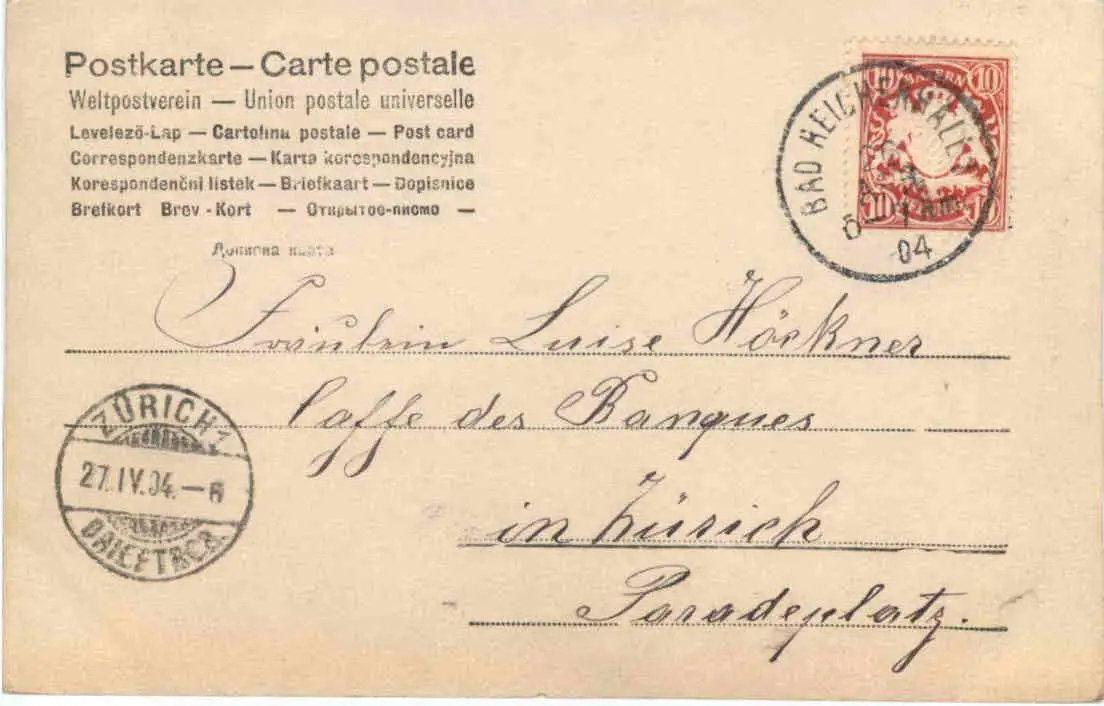 Postkarte — Carte postale
Weltpostverein — Union postale universelle
Levelező-Lap — Cartolina postale — Post card
Correspondenzkarte — Karta korespondencyjna
Korespondenční listek — Briefkaart — Dopisnice
Brefkort Brev-Kort — Открытое-письмо —
Дописна карта
BAD REICHENHALL
04
10 BAYERN 10
10 10
Fräulein Luise Höckner
Caffe des Banques
in Zürich
Paradeplatz.
ZÜRICH 1
27.IV.04.—6
BRIEFTRGR.